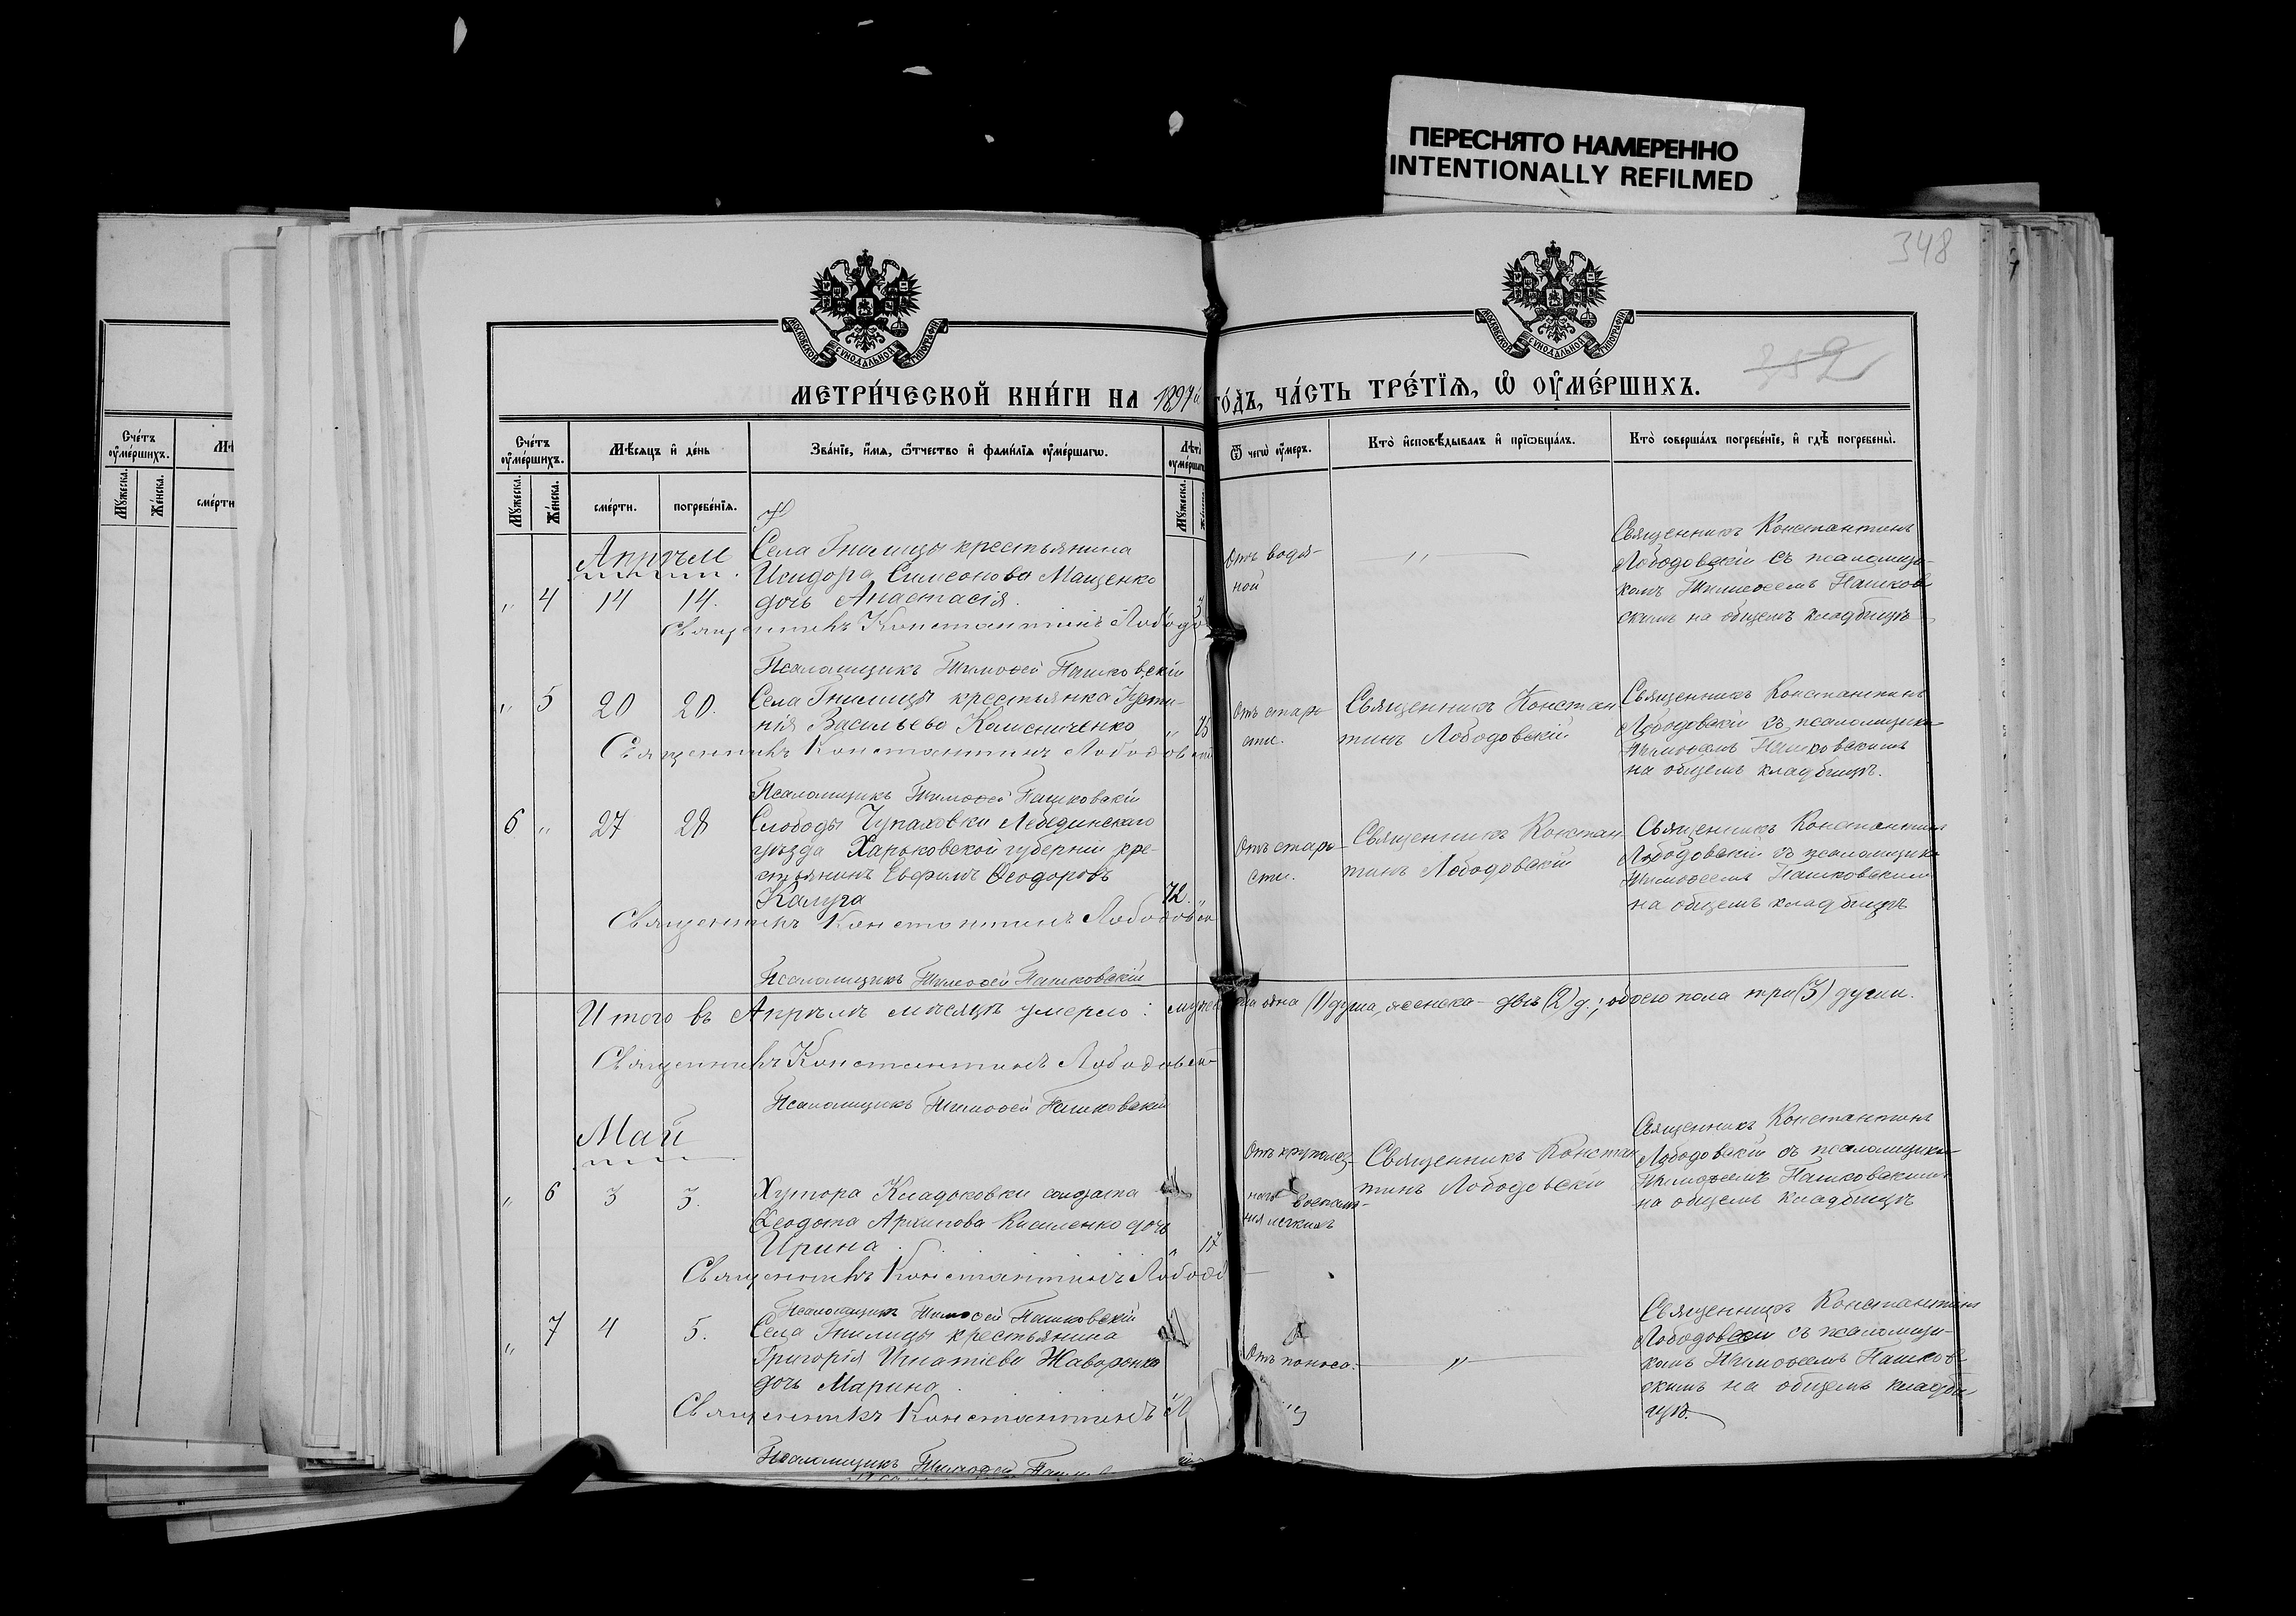 ПЕРЕСНЯТО НАМЕРЕННО
INTENTIONALLY REFILMED
348
352
МОСКОВСКОЙ СУНОДАЛЬНОЙ ТИПОГРАФІИ
МОСКОВСКОЙ СУНОДАЛЬНОЙ ТИПОГРАФІИ
МЕТРИ́ЧЕСКОЙ КНИ́ГИ НА 1897й ГО́ДЪ, ЧА́СТЬ ТРЕ́ТЇѦ, Ѽ ОУ҆МЕ́РШИХЪ.
Сче́тъ оу҆ме́ршихъ.
Мꙋ́жеска.
Же́нска.
сме́рти
Сче́тъ оу҆ме́ршихъ.
Мѣ́сяцъ и҆ де́нь
Зва́нїе, и҆́мѧ, ѻ҆́тчество и҆ фами́лїѧ оу҆ме́ршагѡ.
Лѣ́та оу҆ме́ршагѡ
Ѿ чегѡ̀ оу҆́меръ.
Кто̀ и҆сповѣ́дывалъ и҆ прїѡбща́лъ.
Кто̀ соверша́лъ погребе́нїе, и҆ гдѣ̀ погребены̀.
Мꙋ́жеска.
Же́нска.
сме́рти.
погребе́нїѧ.
Мꙋ́жеска.
Апрѣль
Села Гнилицы крестьянина
Исидора Симеонова Мащенко
" 4 14 14. дочь Анастасія.
Священникъ Константинъ Лободо
Псаломщикъ Тимоѳей Пашковскій
Отъ водя-
ной
"
Священникъ Константинъ
Лободовскій съ псаломщи-
комъ Тимоѳеемъ Пашков-
скимъ на общемъ кладбищѣ
" 5 20 20. Села Гнилицы крестьянка Іусти-
нія Васильева Каменниченко " 75
Священникъ Константинъ Лободовскій
Псаломщикъ Тимоѳей Пашковскій
Отъ старо-
сти.
Священникъ Констан
тинъ Лободовскій
Священникъ Константинъ
Лободовскій съ псаломщико
Тимоѳеемъ Пашковскимъ
на общемъ кладбищѣ.
6 " 27 28 Слободы Чупаховки Лебединскаго
уѣзда Харьковской губерніи кре-
стьянинъ Евфимъ Ѳеодоровъ
Калуга 72. "
Священникъ Константинъ Лободовск
Псаломщикъ Тимоѳей Пашковскій
Отъ старо-
сти.
Священникъ Констан-
тинъ Лободовскій
Священникъ Константинъ
Лободовскій съ псаломщико
Тимоѳеемъ Пашковскимъ
на общемъ кладбищѣ
Итого въ Апрѣлѣ мѣсяцѣ умерло: мужеска одна (1) душа, женска - двѣ (2) д.; обоего пола три (3) души.
Священникъ Константинъ Лободовскій
Псаломщикъ Тимоѳей Пашковскій
Май
" 6 3 3. Хутора Кладьковки солдата
Ѳеодота Архипова Кисиленко дочь
Ирина "
Священникъ Константинъ Лободо
Псаломщикъ Тимоѳей Пашковскій
Отъ крупоз
наго воспале-
нія легкихъ
Священникъ Констан
тинъ Лободовскій
Священникъ Константинъ
Лободовскій съ псаломщико
Тимоѳеемъ Пашковскимъ
на общемъ кладбищѣ
" 7 4 5. Села Гнилицы крестьянина
Григорія Игнатіева Жаворонко
дочь Марина.
Священникъ Константинъ Л
Псаломщикъ Тимоѳей
Отъ поноса.
"
Священникъ Константинъ
Лободовскій съ псаломщи-
комъ Тимоѳеемъ Пашков-
скимъ на общемъ кладби-
щѣ.